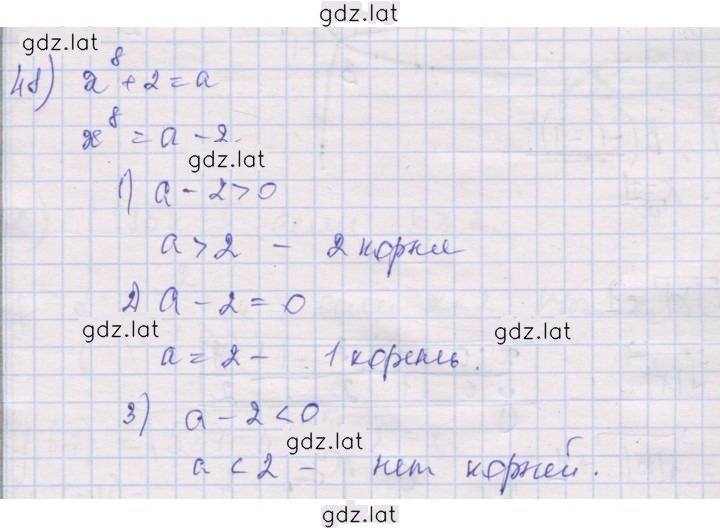 gdz.lat
gdz.lat
48) x⁸ + 2 = a
x⁸ = a - 2.
gdz.lat
1) a - 2 > 0
a > 2 - 2 корня
2) a - 2 = 0
gdz.lat gdz.lat
a = 2 - 1 корень.
3) a - 2 < 0
gdz.lat
a < 2 - нет корней.
gdz.lat